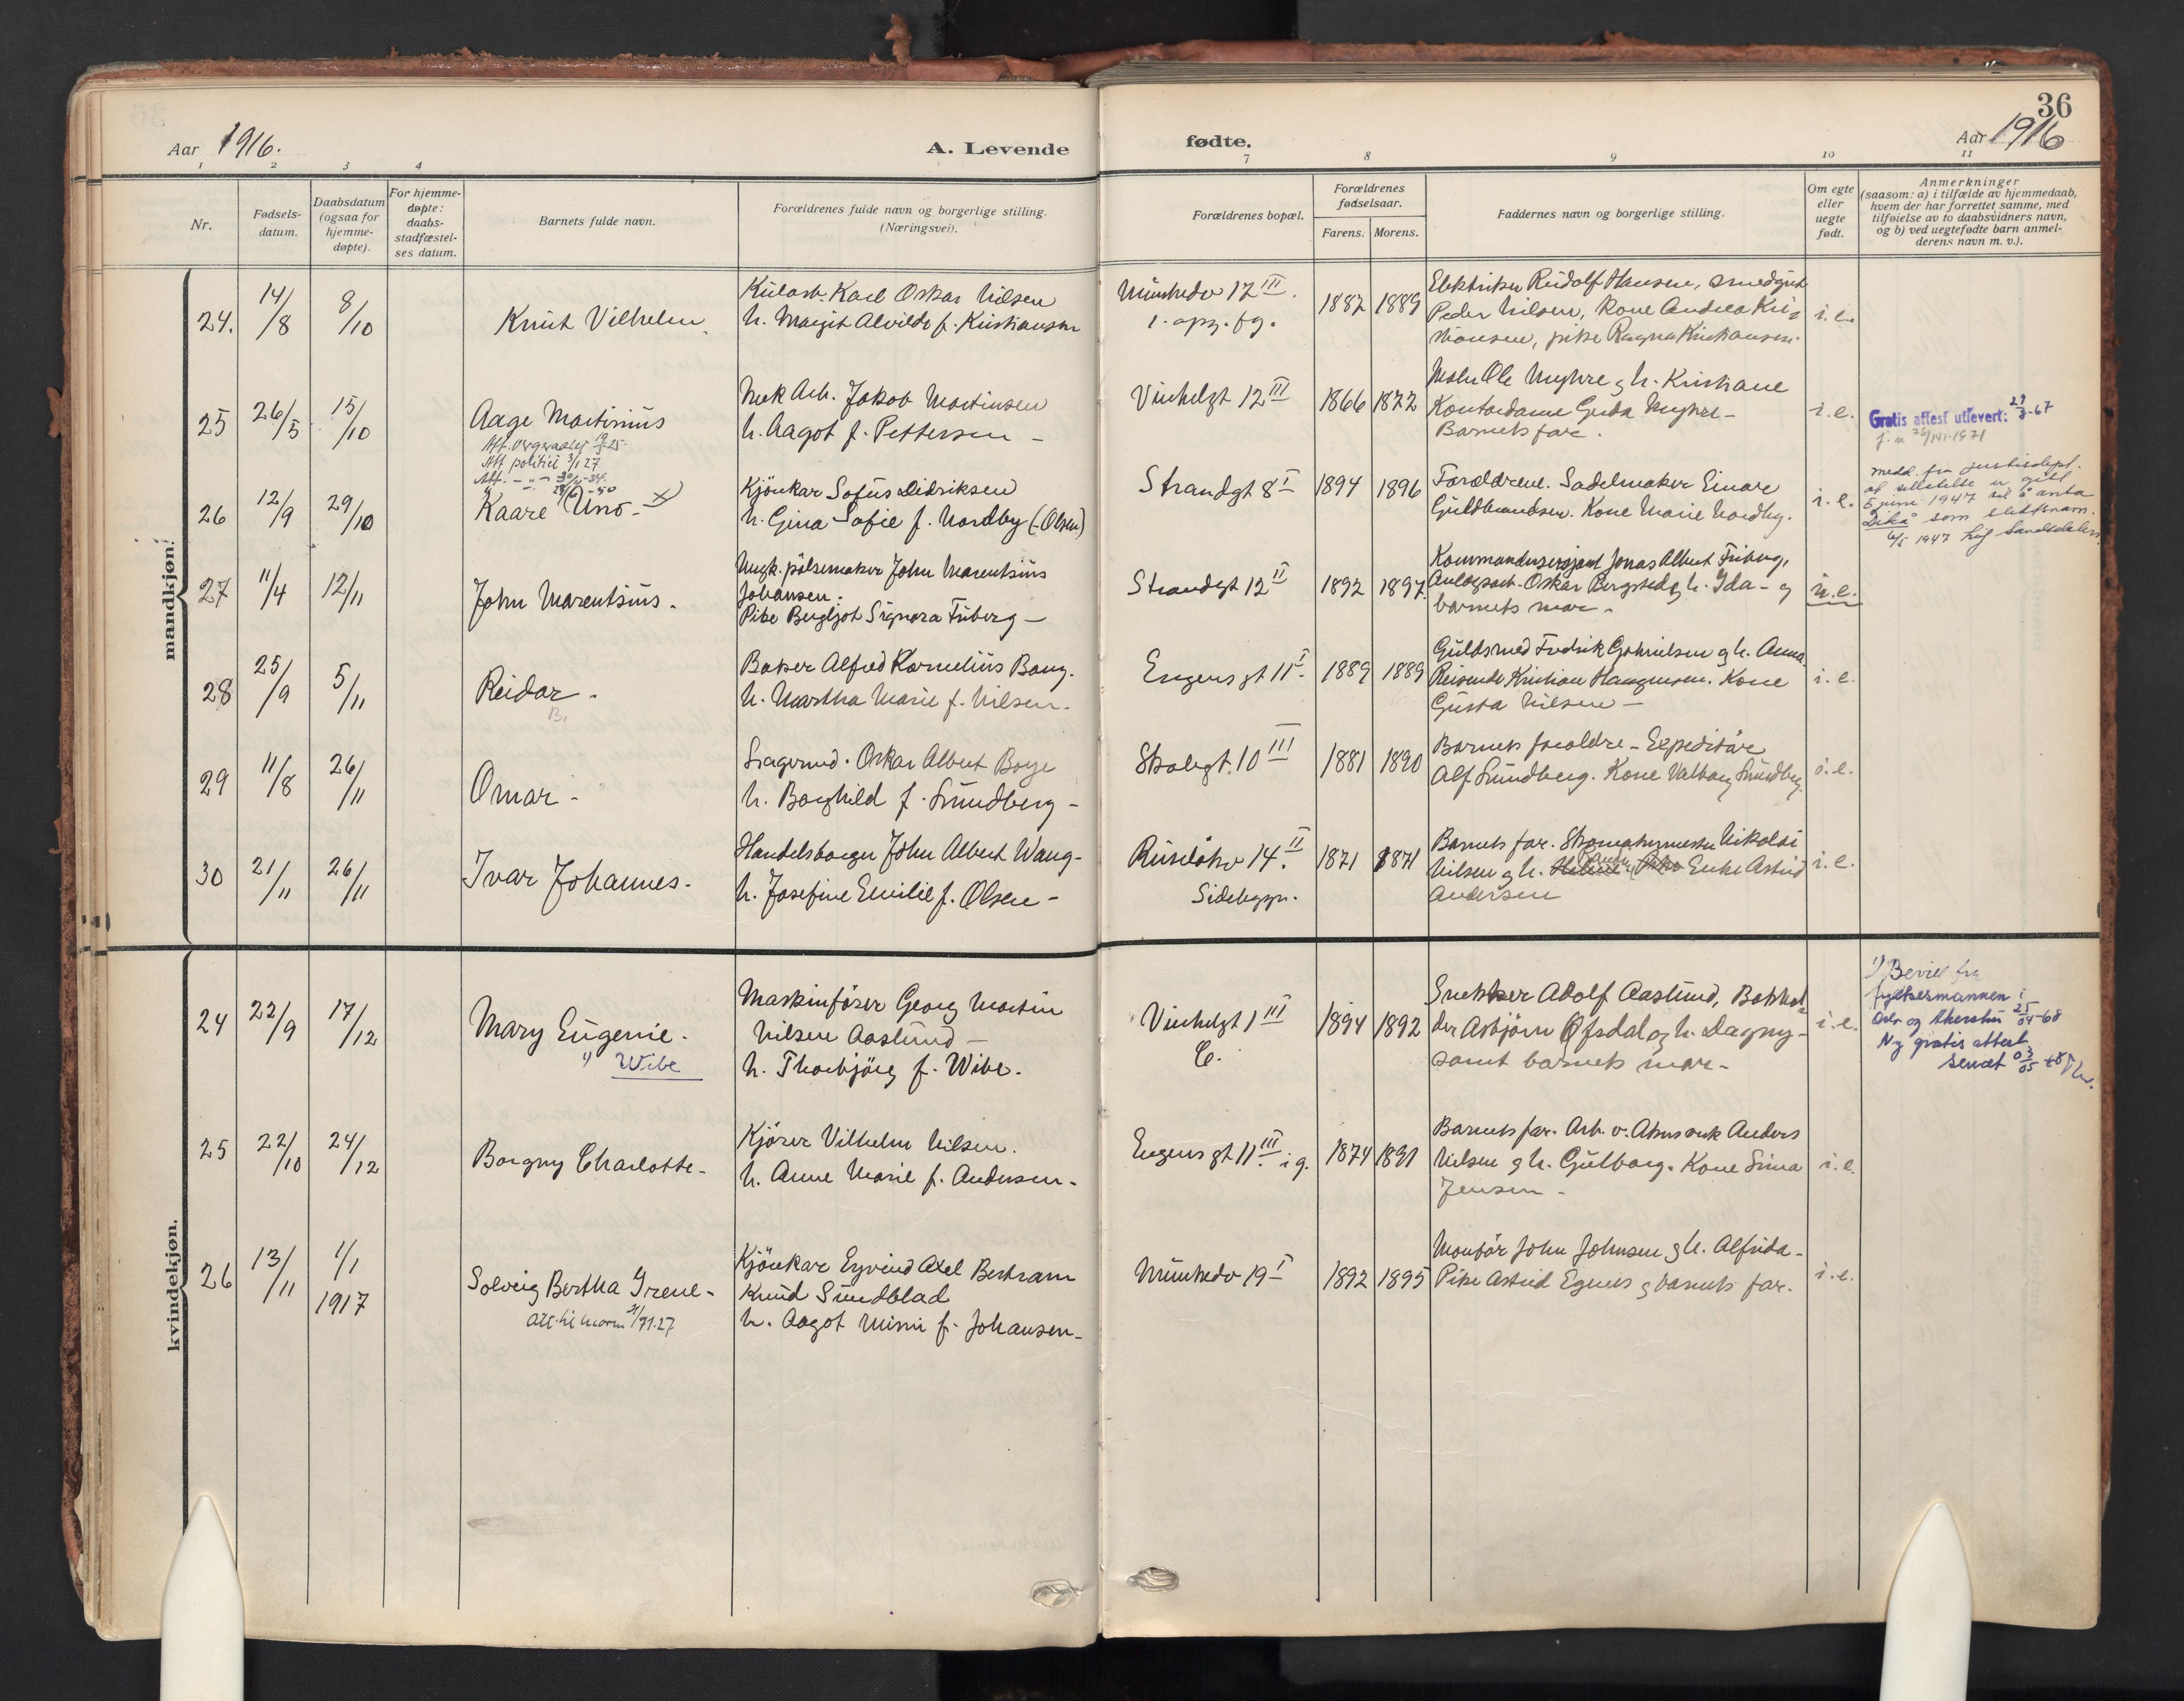 36
Aar 1916.
A. Levende fødte.
Aar 1916
1 2 3 4 7 8 9 10 11
Nr.
Fødsels-
datum.
Daabsdatum
(ogsaa for
hjemme-
døpte).
For hjemme-
døpte:
daabs-
stadfæstel-
ses datum.
Barnets fulde navn.
Forældrenes fulde navn og borgerlige stilling.
(Næringsvei).
Forældrenes bopæl.
Forældrenes
fødselsaar.
Farens. Morens.
Faddernes navn og borgerlige stilling.
Om egte
eller
uegte
født.
Anmerkninger
(saasom: a) i tilfælde av hjemmedaab,
hvem der har forrettet samme, med
tilføielse av to daabsvidners navn,
og b) ved uegtefødte barn anmel-
derens navn m. v.).
mandkjøn.
24. 14/8 8/10
Knut Vilhelm
Kularb. Karl Oskar Nilsen
h. Margit Alvilde f. Kristiansen
Munkedv 12 III.
1. opg. fg.
1882 1889
Elektriker Rudolf Hansen, smedgut
Peder Nilsen, Kone Andrea Kri-
stiansen, pike Ragna Kristiansen.
i. e.
25 26/5 15/10
Aage Martinius
Att. politiet 3/1 27
Mek Arb. Jakob Martinsen
h. Aagot f. Pettersen -
Vinkelgt 12 III
1866 1872
Maler Ole Myhre og h. Kristiane
Kontordame Gerda Myhre -
Barnets far.
i. e.
Gratis attest utlevert: 29/8-67
26 12/9 29/10
Kaare Uno - x)
Kjönkar Sofus Didriksen
h. Gina Sofie f. Nordby (-Olsen)
Strandgt 8 I
1894 1896
Forældrene. Sadelmaker Einar
Guldbrandsen. Kone Marie Nordby.
i. e.
medd. fra justisdept.
at tilletelse er gitt
5 juni 1947 til å anta
Dekå som slektsnavn.
27 11/4 12/11
John Marentsius.
Ungk. pölsemaker John Marentsius
Johansen.
Pike Bergljot Signora Friberg -
Strandgt 12 II
1892 1897.
Kommandersergant Jonas Albert Friberg,
Anlægsarb. Oskar Bergsted og h. Ida - og
barnets mor -
u. e.
28 25/9 5/11
Reidar -
Baker Alfred Kornelius Bang.
h. Martha Marie f. Nilsen.
Engens gt 11 I
1889 1889
Guldsmed Fredrik Gabrielsen og h. Anna
Reisende Kristian Haagensen. Kone
Gusta Nilsen -
i. e.
29 11/8 26/11
Omar -
Oskar Albert Borge
h. Borghild f. Sundberg -
Skolegt. 10 III
1881 1890
Barnets forældre - Expeditör
Alf Sundberg. Kone Valborg Sundberg
i. e.
30 21/11 26/11
Ivar Johannes.
Handelsborger John Albert Wang -
h. Josefine Emilie f. Olsen -
Ruselökv 14 II.
Sidebygn.
1871 1871
Barnets far. Skomakermester Nikolai
Nilsen og h. Enke Astrid
Andersen
i. e.
kvindekjøn.
24 22/9 17/12
Mary Eugenie.
1) Wibe
Maskinförer Georg Martin
Nilsen Aaslund -
h. Thorbjörg f. Wibe.
Vinkelgt 1 III
C.
1894 1892
Snekker Adolf Aaslund, Bokhol-
der Asbjörn Öfsdal og h. Dagny -
samt barnets mor -
i. e.
1) Bevill fra
fylkesmannen i
Oslo og Akershus 25/04-68
Ny gratis attest
sendt 03/05-68
25 22/10 24/12
Borgny Charlotte -
Kjörer Vilhelm Nilsen.
h. Anne Marie f. Andersen -
Engens gt 11 III i g.
1874 1891
Barnets far. Arb. v. Akers mek Anders
Nilsen og h. Gulborg. Kone Lina
Jensen -
i. e.
26 13/11 1/1
1917
Solveig Bertha Irene -
Kjönkar Eyvind Axel Bertram
Knud Sundblad
h. Aagot Mimi f. Johansen -
Munkedv 19 I
1892 1895
Montör John Johnsen og h. Alfrida -
Pike Astrid Egnes og barnets far.
i. e.